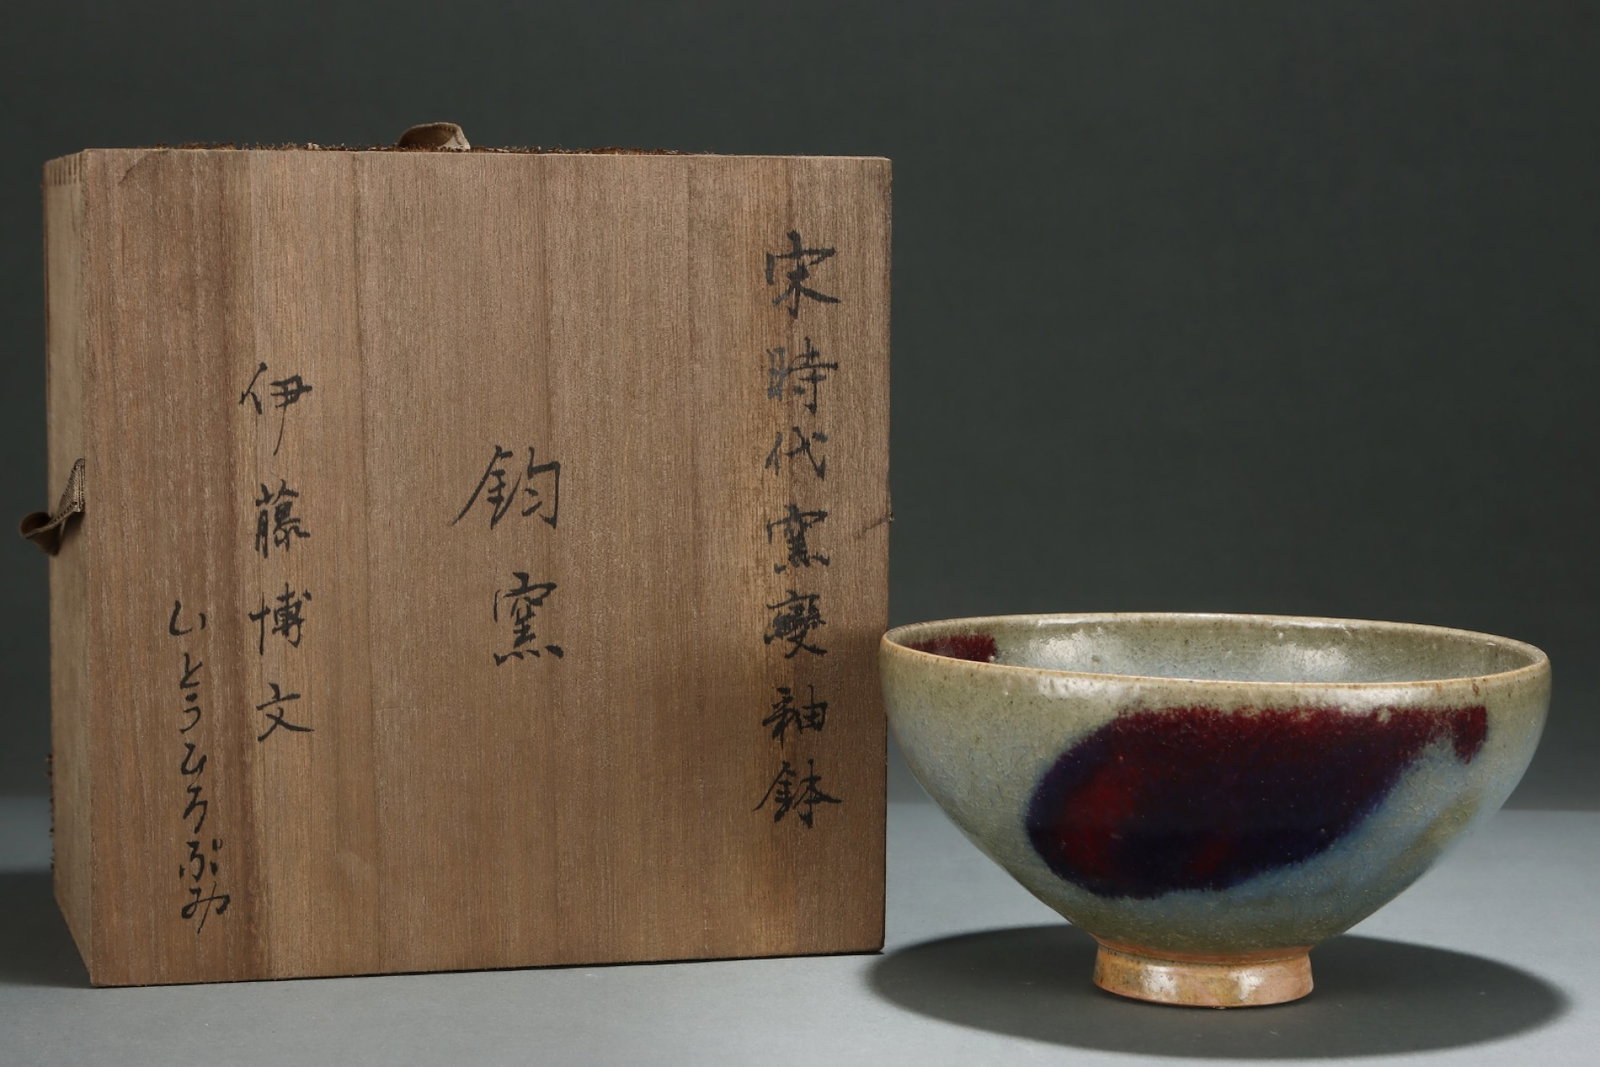 宋時代窯變袖鉢
鈞窯
伊藤博文
いとうひろぶみ